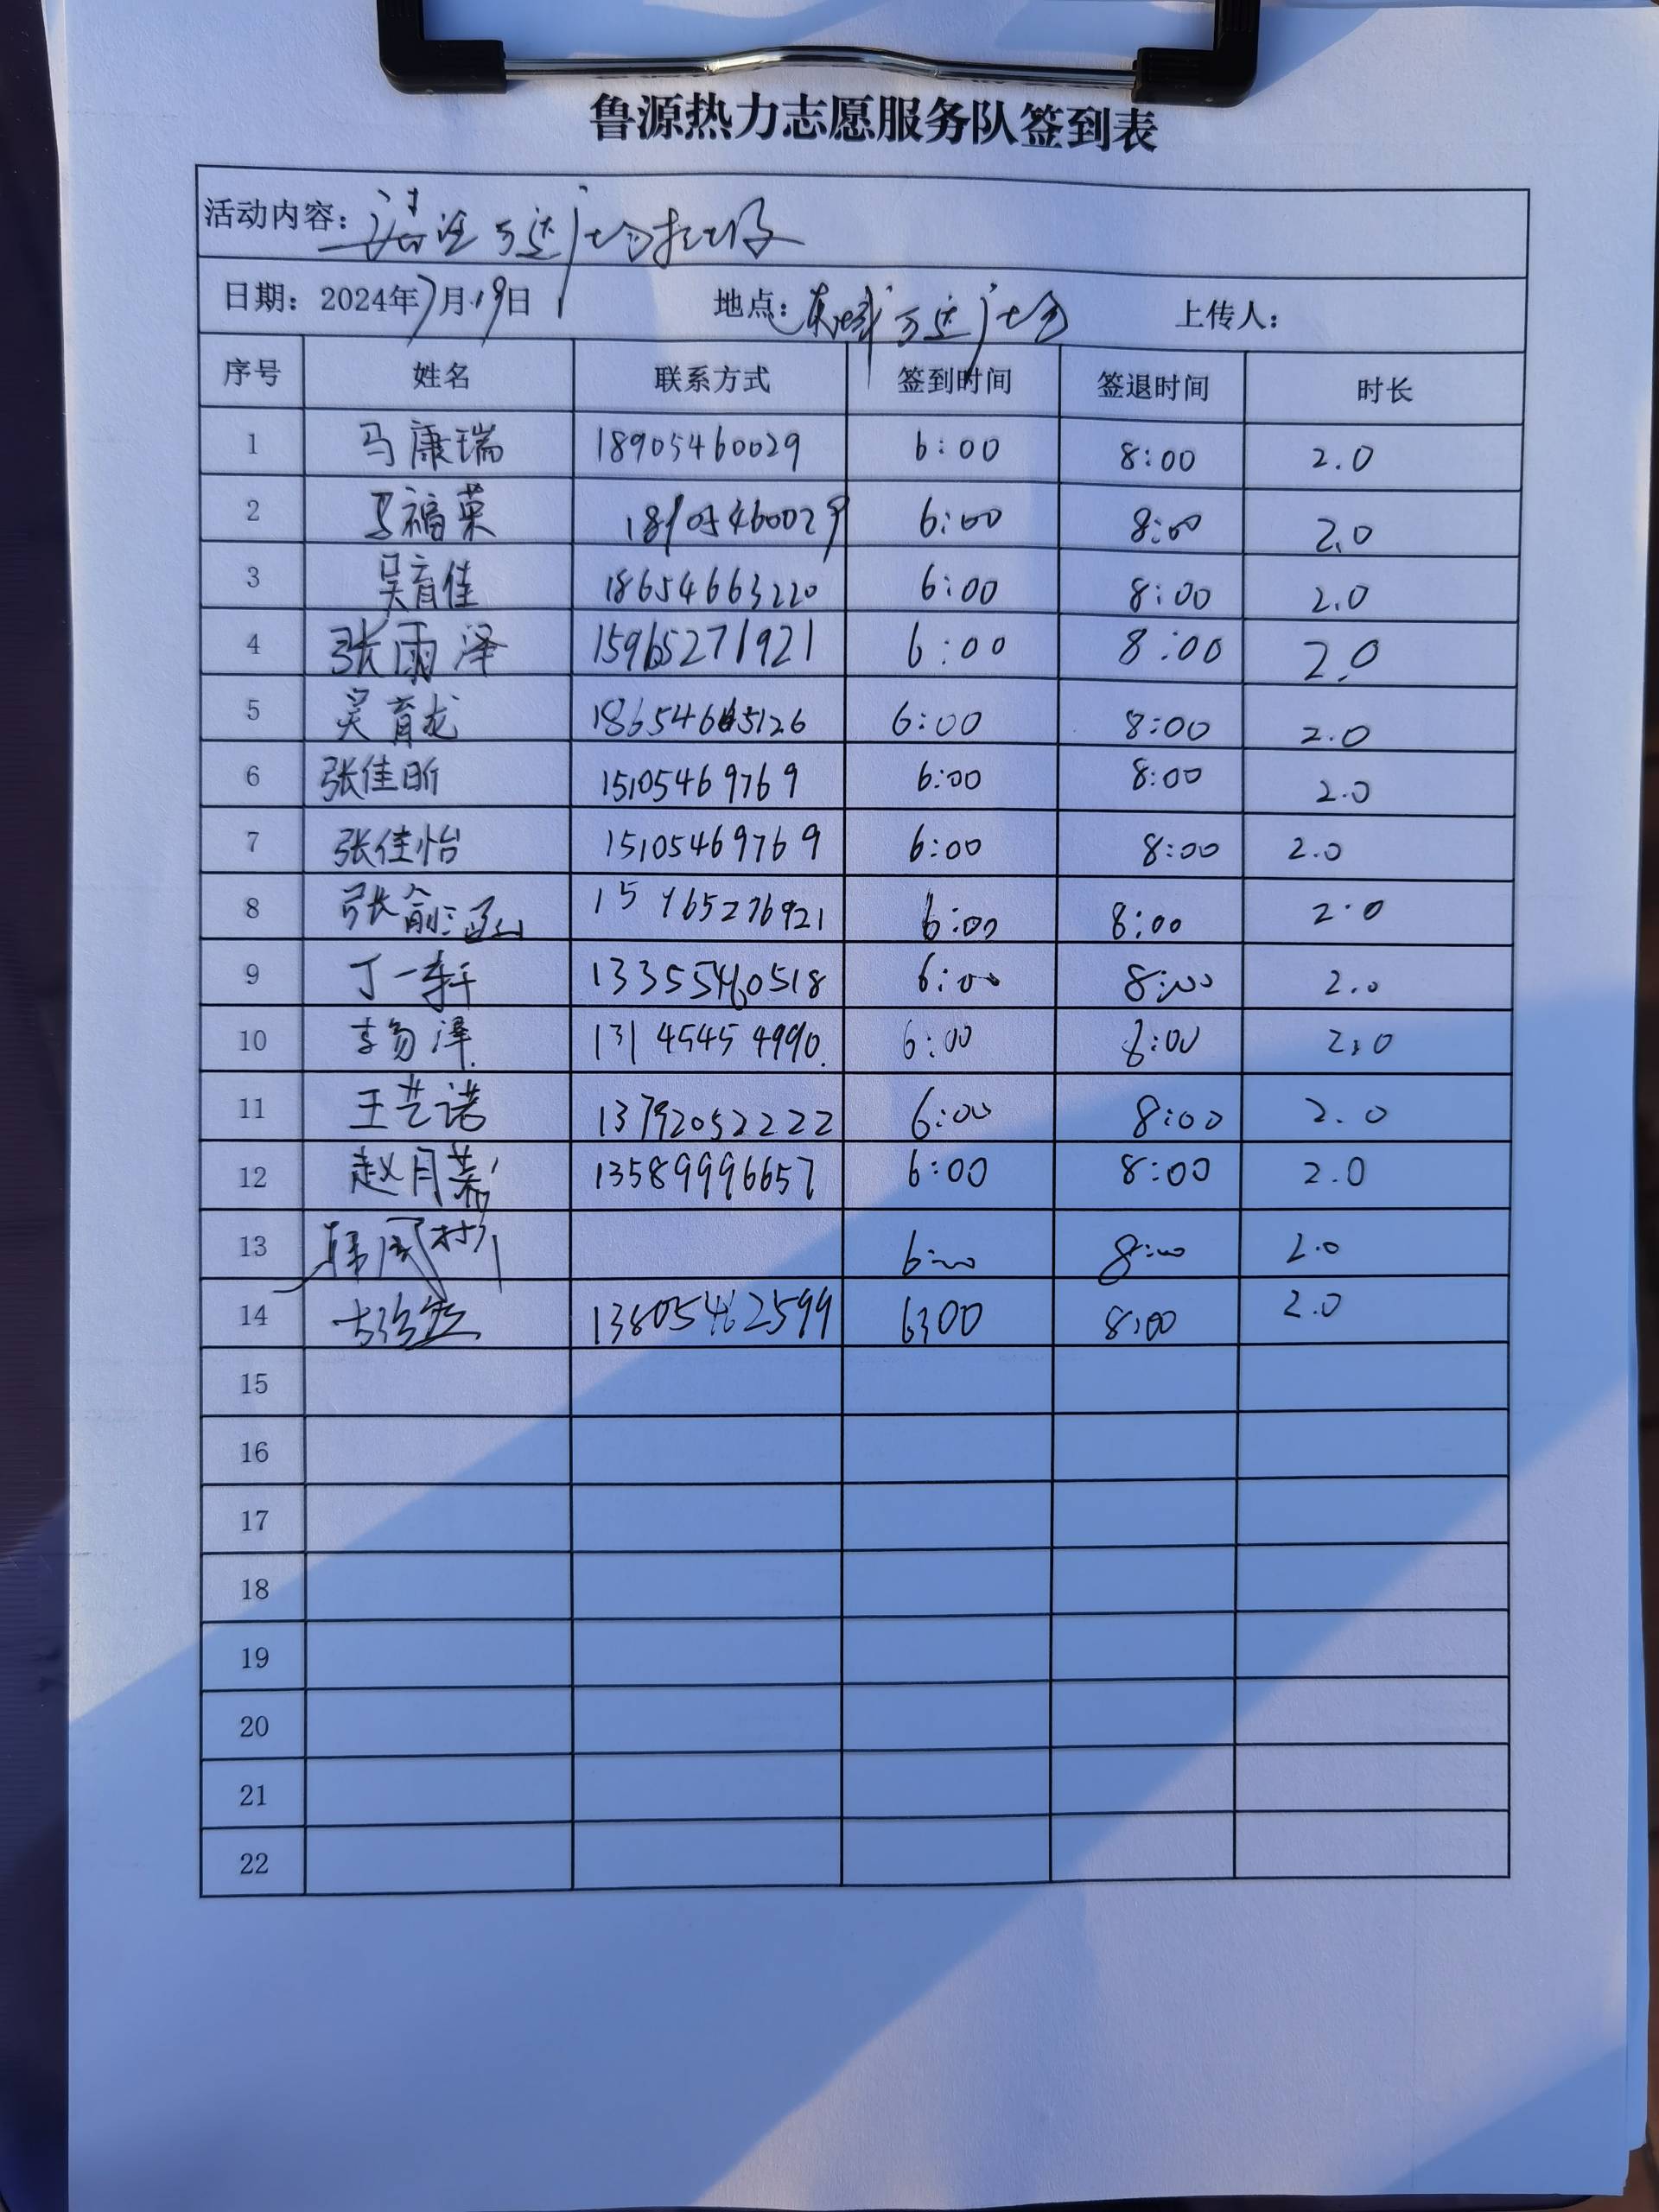 鲁源热力志愿服务队签到表
活动内容：清洁万达广场垃圾
日期：2024年7月19日 地点：东城万达广场 上传人：
序号 姓名 联系方式 签到时间 签退时间 时长
1 马康瑞 18905460029 6:00 8:00 2.0
2 马福荣 18905460029 6:00 8:00 2.0
3 吴育佳 18654663220 6:00 8:00 2.0
4 张雨泽 15965271921 6:00 8:00 2.0
5 吴育龙 6:00 8:00 2.0
6 张佳昕 15105469769 6:00 8:00 2.0
7 张佳怡 15105469769 6:00 8:00 2.0
8 张俞涵 6:00 8:00 2.0
9 丁一轩 13355460518 6:00 8:00 2.0
10 李易泽 13145454990 6:00 8:00 2.0
11 王艺诺 13792052222 6:00 8:00 2.0
12 赵月 13589996657 6:00 8:00 2.0
13 韩风彬 6:00 8:00 2.0
14 13805462599 6:00 8:00 2.0
15
16
17
18
19
20
21
22